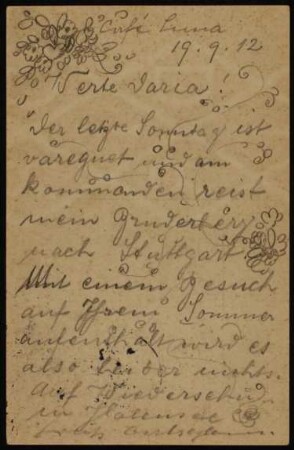 Café Luna
19.9.12
Werte Daria!
Der letzte Sonntag ist
väregnet und am
kommanden reist
mein Bruderherz
nach Stuttgart
Mit einem Besuch
auf Ihrem Sommer
aufenthalt wird es
also leider nichts.
Auf Wiedersehn
in Halensee